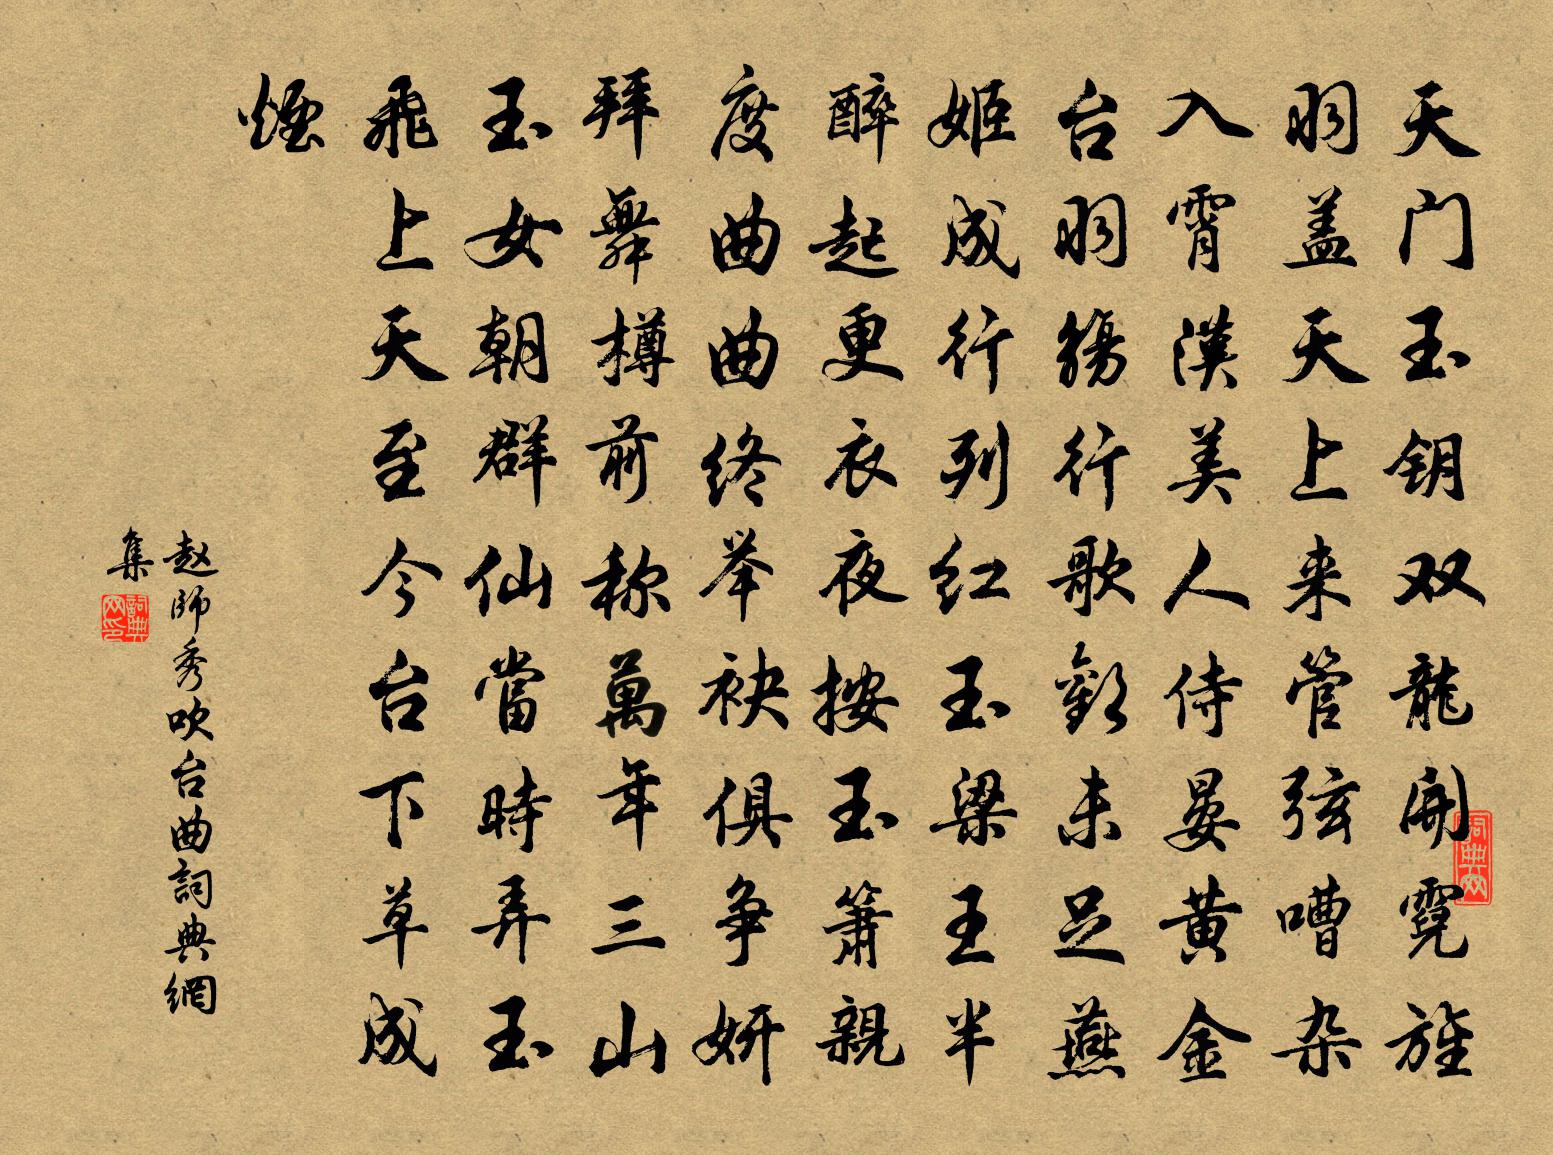 天门玉钥双龍開霓旌
羽盖天上来管弦嘈杂
入霄漢美人侍晏黄金
台羽觴行歌歡未足燕
姬成行列红玉梁王半
醉起更衣夜按玉箫親
度曲曲终举袂俱争妍
拜舞樽前称萬年三山
玉女朝群仙當時弄玉
飛上天至今台下草成
煙
赵師秀吹台曲詞典網
集
詞典网印
詞典网